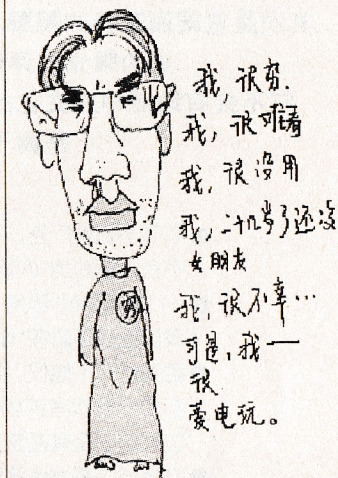 我，很穷.
我，很难看
我，很没用
我，二十九岁了还没
女朋友
我，很不幸…
可是，我——
很
爱电玩。
穷